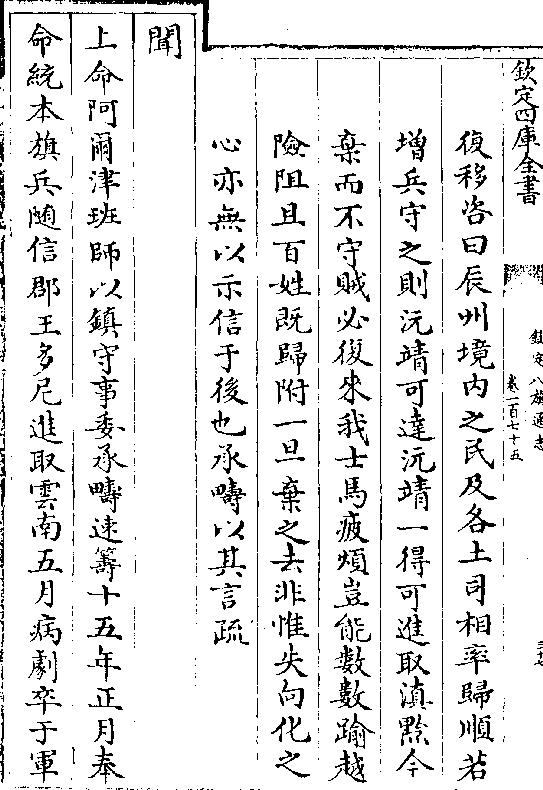 欽定四庫全書
欽定八旗通志
卷一百七十五
復移咨曰辰州境内之民及各土司相率歸順若
增兵守之則沅靖可達沅靖一得可進取滇黔今
棄而不守賊必復來我士馬疲煩豈能數數踰越
險阻且百姓既歸附一旦棄之去非惟失向化之
心亦無以示信于後也承疇以其言疏
聞
上命阿爾津班師以鎮守事委承疇速籌十五年正月奉
命統本旗兵随信郡王多尼進取雲南五月病劇卒于軍